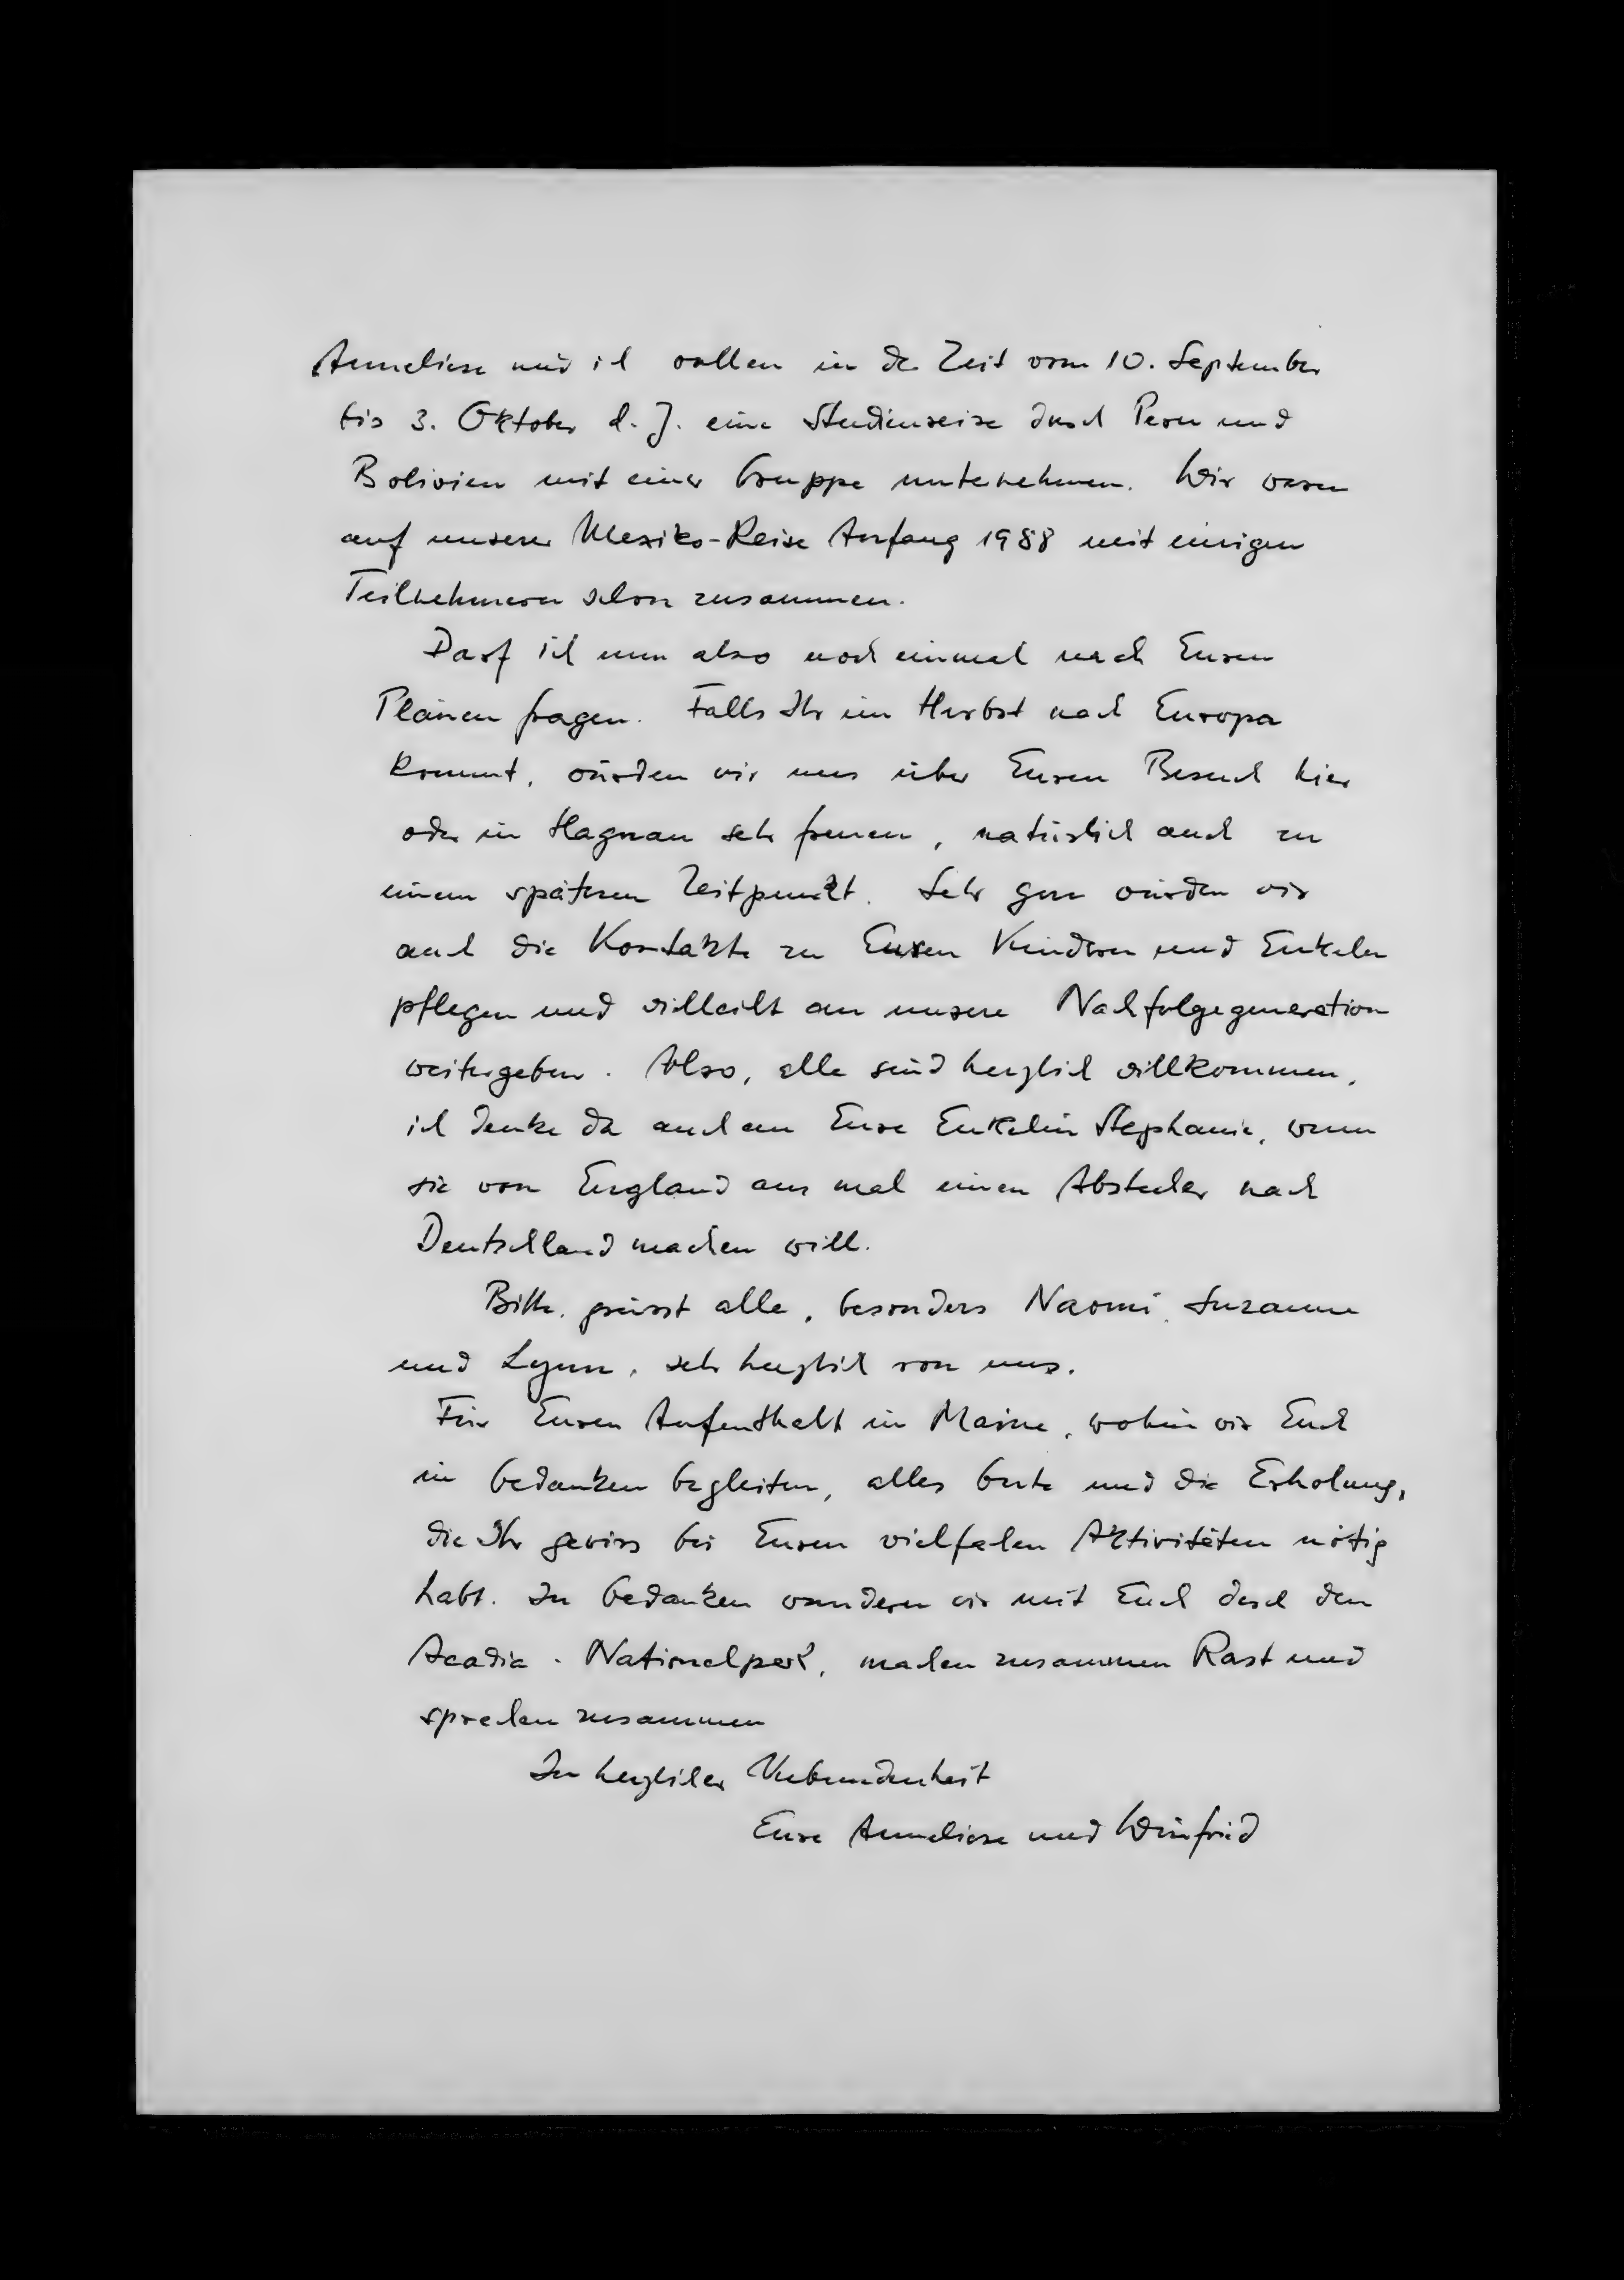 Anneliese und ich wollen in der Zeit vom 10. September
bis 3. Oktober d. J. eine Studienreise durch Peru und
Bolivien mit einer Gruppe unternehmen. Wir waren
auf unserer Mexiko-Reise Anfang 1988 mit einigen
Teilnehmern schon zusammen.
Darf ich nun also noch einmal nach Euren
Plänen fragen. Falls Ihr im Herbst nach Europa
kommt, würden wir uns über Euren Besuch hier
oder in Hagnau sehr freuen, natürlich auch zu
einem späteren Zeitpunkt. Sehr gern würden wir
auch die Kontakte zu Euren Kindern und Enkeln
pflegen und vielleicht an unsere Nachfolgegeneration
weitergeben. Also, alle sind herzlich willkommen,
ich denke da auch an Eure Enkelin Stephanie, wenn
sie von England aus mal einen Abstecher nach
Deutschland machen will.
Bitte, grüsst alle, besonders Naomi, Suzanne
und Lynn, sehr herzlich von uns.
Für Euren Aufenthalt in Maine, wohin wir Euch
in Gedanken begleiten, alles Gute und die Erholung,
die Ihr gewiss bei Euren vielfachen Aktivitäten nötig
habt. In Gedanken wandern wir mit Euch durch den
Acadia-Nationalpark, machen zusammen Rast und
sprechen zusammen
In herzlicher Verbundenheit
Eure Anneliese und Winfried